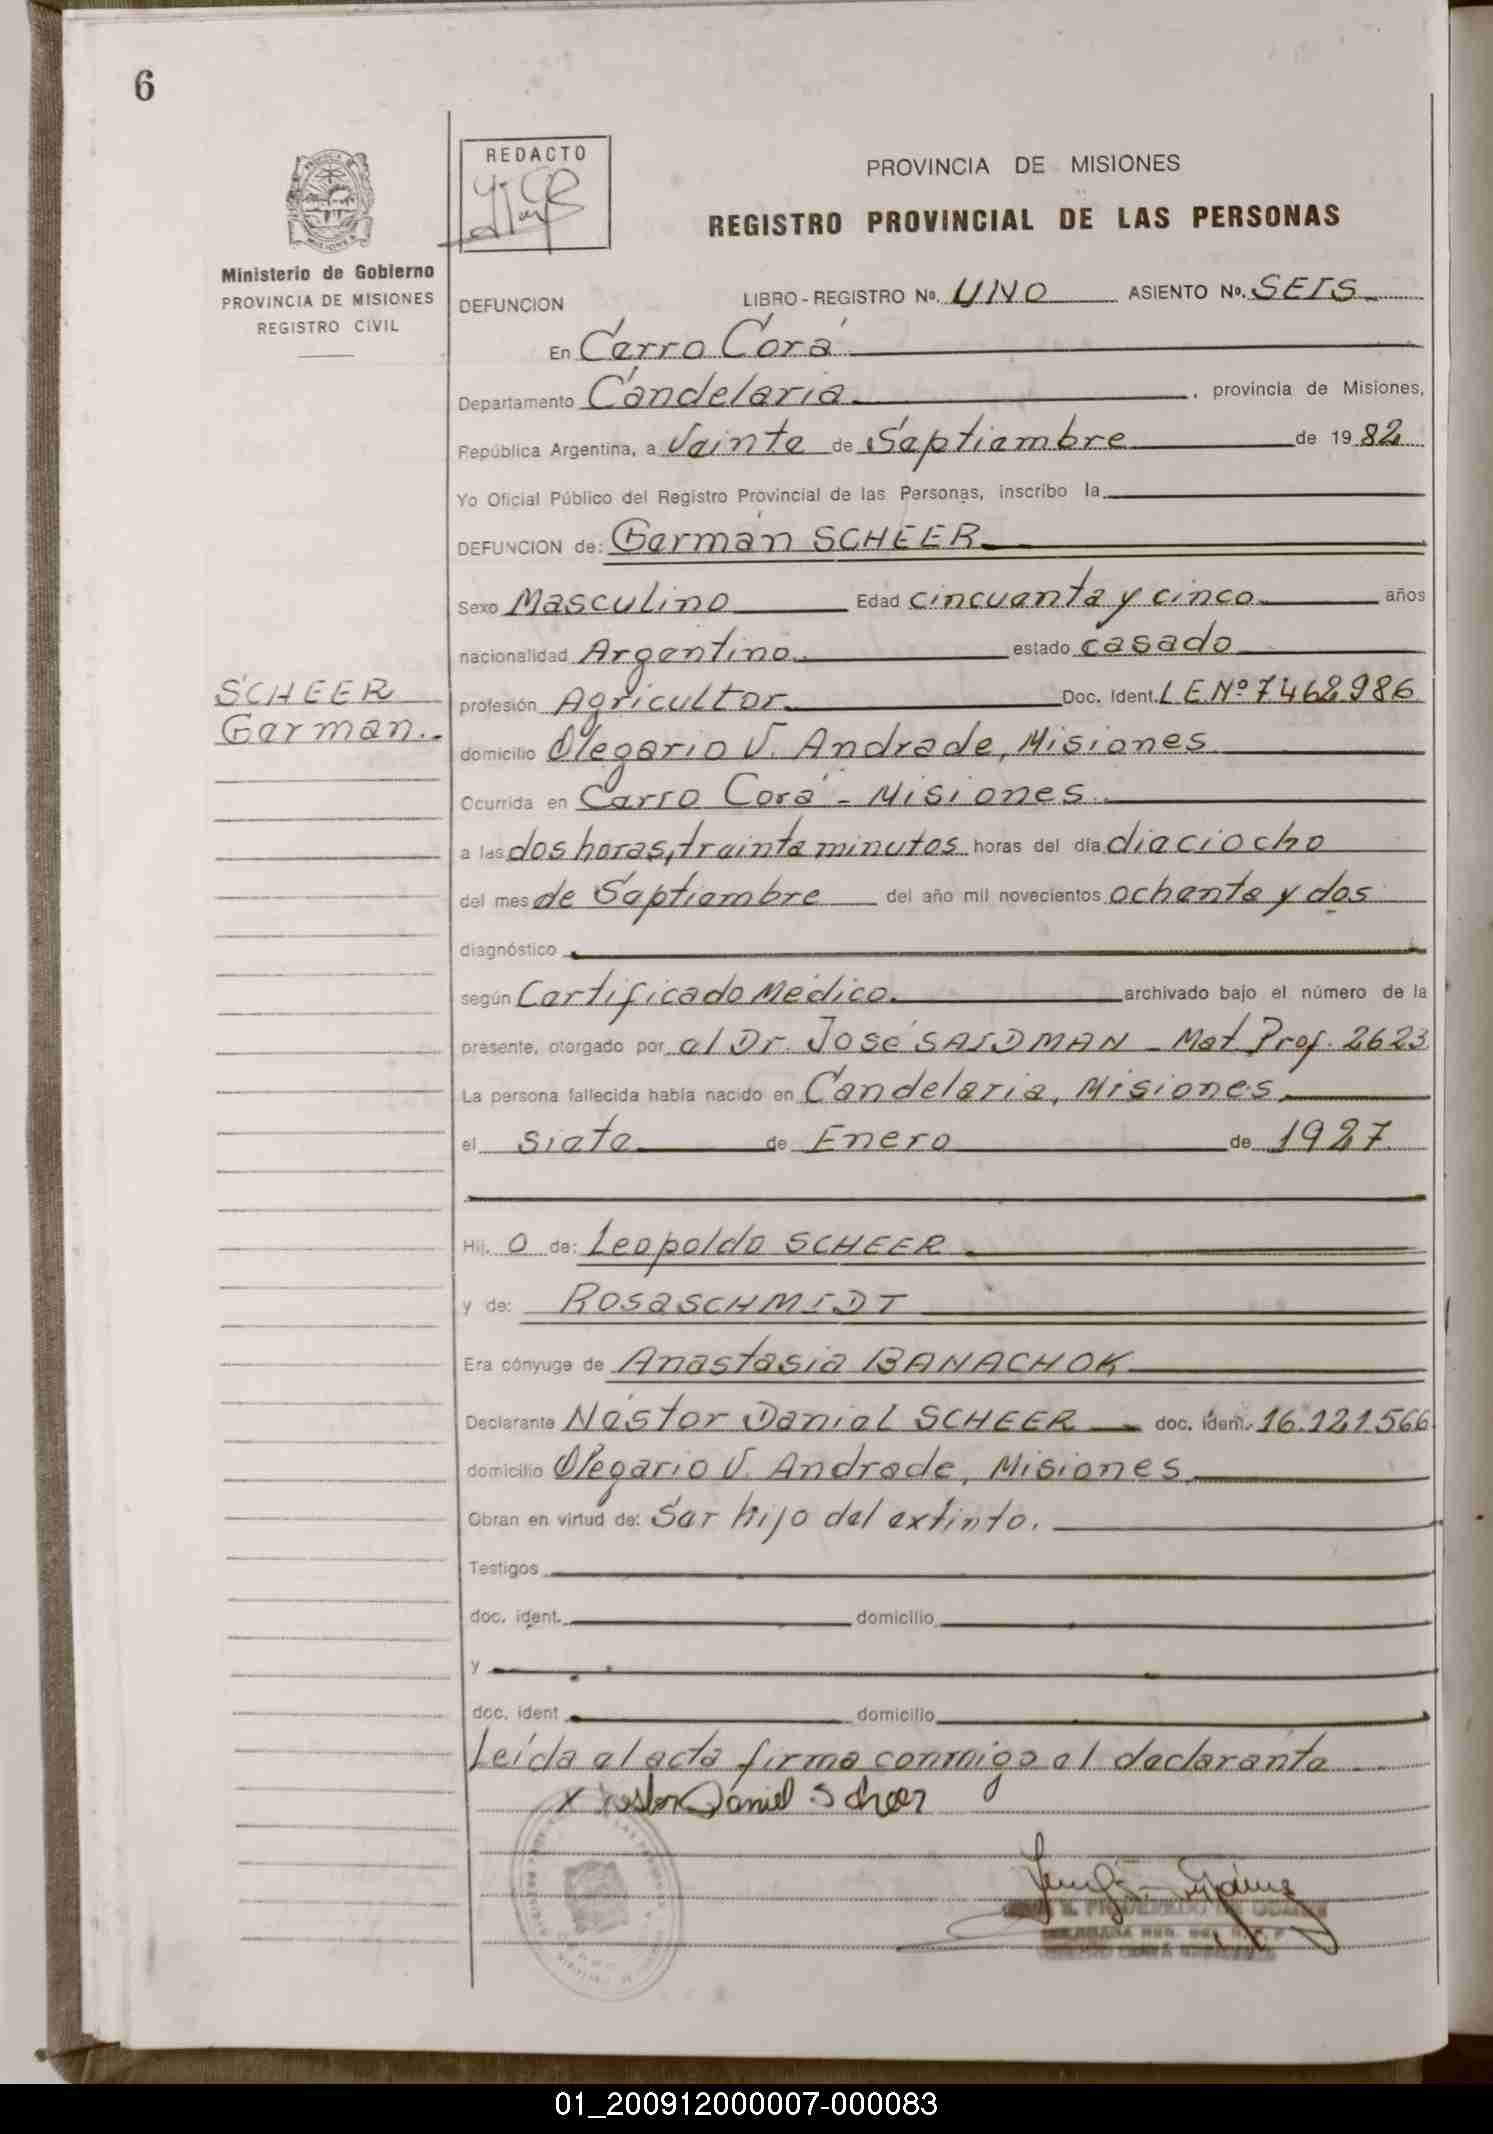 6
REDACTO
PROVINCIA DE MISIONES
REGISTRO PROVINCIAL DE LAS PERSONAS
Ministerio de Gobierno
PROVINCIA DE MISIONES
REGISTRO CIVIL
DEFUNCION LIBRO - REGISTRO No. UNO ASIENTO No. SEIS
En Cerro Corá
Departamento Candelaria , provincia de Misiones,
República Argentina, a Veinte de Septiembre de 1982
Yo Oficial Público del Registro Provincial de las Personas, inscribo la
DEFUNCION de: Germán SCHEER
Sexo Masculino Edad cincuenta y cinco años
nacionalidad Argentino estado casado
SCHEER
German.-
profesión Agricultor Doc. Ident. L.E.Nº 7.462.986
domicilio Olegario V. Andrade, Misiones
Ocurrida en Cerro Corá - Misiones
a las dos horas, treinta minutos horas del día dieciocho
del mes de Septiembre del año mil novecientos ochenta y dos
diagnóstico
según Certificado Médico. archivado bajo el número de la
presente, otorgado por el Dr. José SAIDMAN - Mat Prof. 2623
La persona fallecida había nacido en Candelaria, Misiones
el siete de Enero de 1927
Hij. o de: Leopoldo SCHEER
y de: Rosa SCHMIDT
Era cónyuge de Anastasia BANACHOK
Declarante Néstor Daniel SCHEER doc. ident. 16.121.566
domicilio Olegario V. Andrade, Misiones
Obran en virtud de: Ser hijo del extinto.
Testigos
doc. ident. domicilio
y
doc. ident domicilio
Leída el acta firma conmigo el declarante
x Nestor Daniel Scheer
01_200912000007-000083